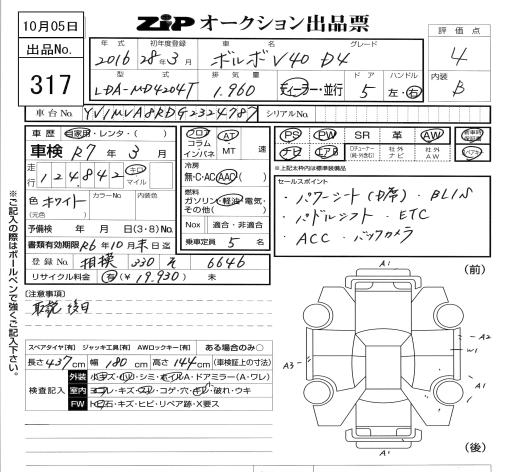 10月05日
ZiP オークション出品票
出品No.
317
年式 初年度登録 車名 グレード
2016 28年3月 ボルボ V40 D4
型式 排気量 ドア ハンドル
LDA-MD4204T 1.960 ディーラー・並行 5 左・右
評価点
4
内装
B
車台No. YV1MVA8RDG2324787 シリアルNo.
車歴 自家用・レンタ・( )
車検 R7年3月
走行 124,842 キロ マイル
色 ホワイト カラーNo. 内装色
(元色)
予備検 年 月 日(3・8)No.
書類有効期限 R6年10月末日迄
登録No. 相模 330 え 6646
リサイクル料金 有(¥19,930) 未
フロア コラム インパネ AT・MT 速
冷房
無・C・AC・AAC( )
燃料
ガソリン・軽油・電気・その他( )
Nox 適合・非適合
乗車定員 5 名
PS PW SR 革 AW 新車時保証書
ナビ エアB 社外ナビ 社外AW
※上記太枠内は標準装備品
セールスポイント
・パワーシート(D席) ・BLIS
・パドルシフト ・ETC
・ACC ・バックカメラ
※ご記入の際はボールペンで強くご記入下さい。
[注意事項]
取説 後日
スペアタイヤ[有] ジャッキ工具[有] AWロックキー[有] ある場合のみ○
長さ437cm 幅180cm 高さ144cm (車検証上の寸法)
検査記入
外装 小キズ・凹・シミ・ホイルA・ドアミラー(A・ワレ)
室内 ヨゴレ・キズ・スレ・コゲ・穴・キレ・破れ・ウキ
FW トビ石・キズ・ヒビ・リペア跡・X要ス
(前)
A1
A2
W1
A3
A1
A1
(後)